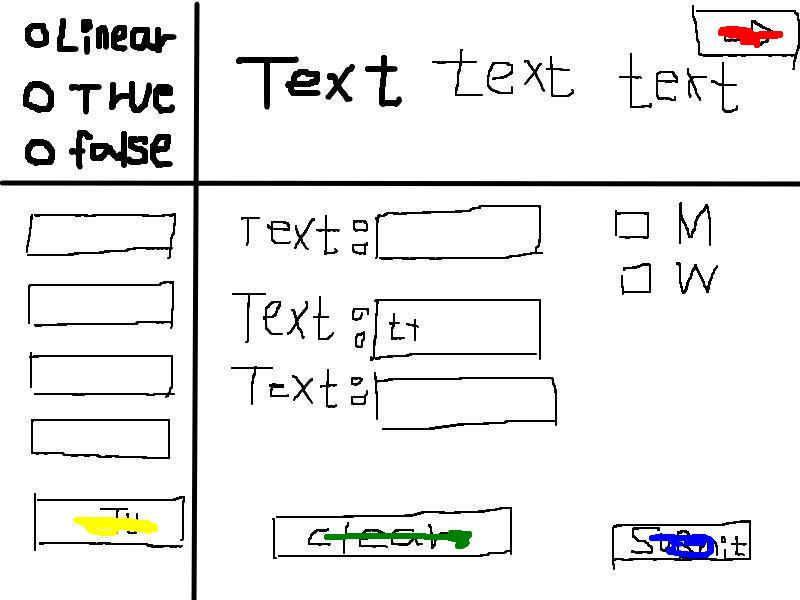 Linear
TRUE
false
Text text text
Text:
Text: tt
Text:
M
W
clear
Submit